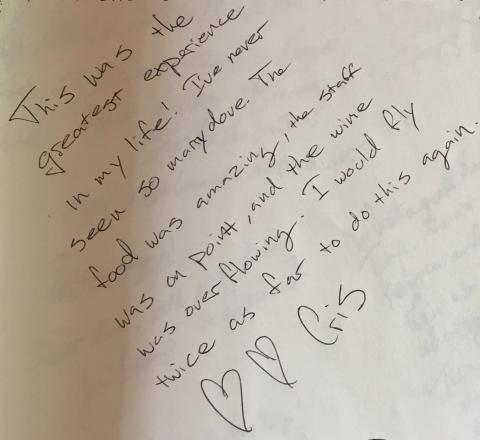 This was the
greatest experience
in my life! I've never
seen so many dove. The
food was amazing, the staff
was on point, and the wine
was over flowing. I would fly
twice as far to do this again.
♡ ♡ Cris